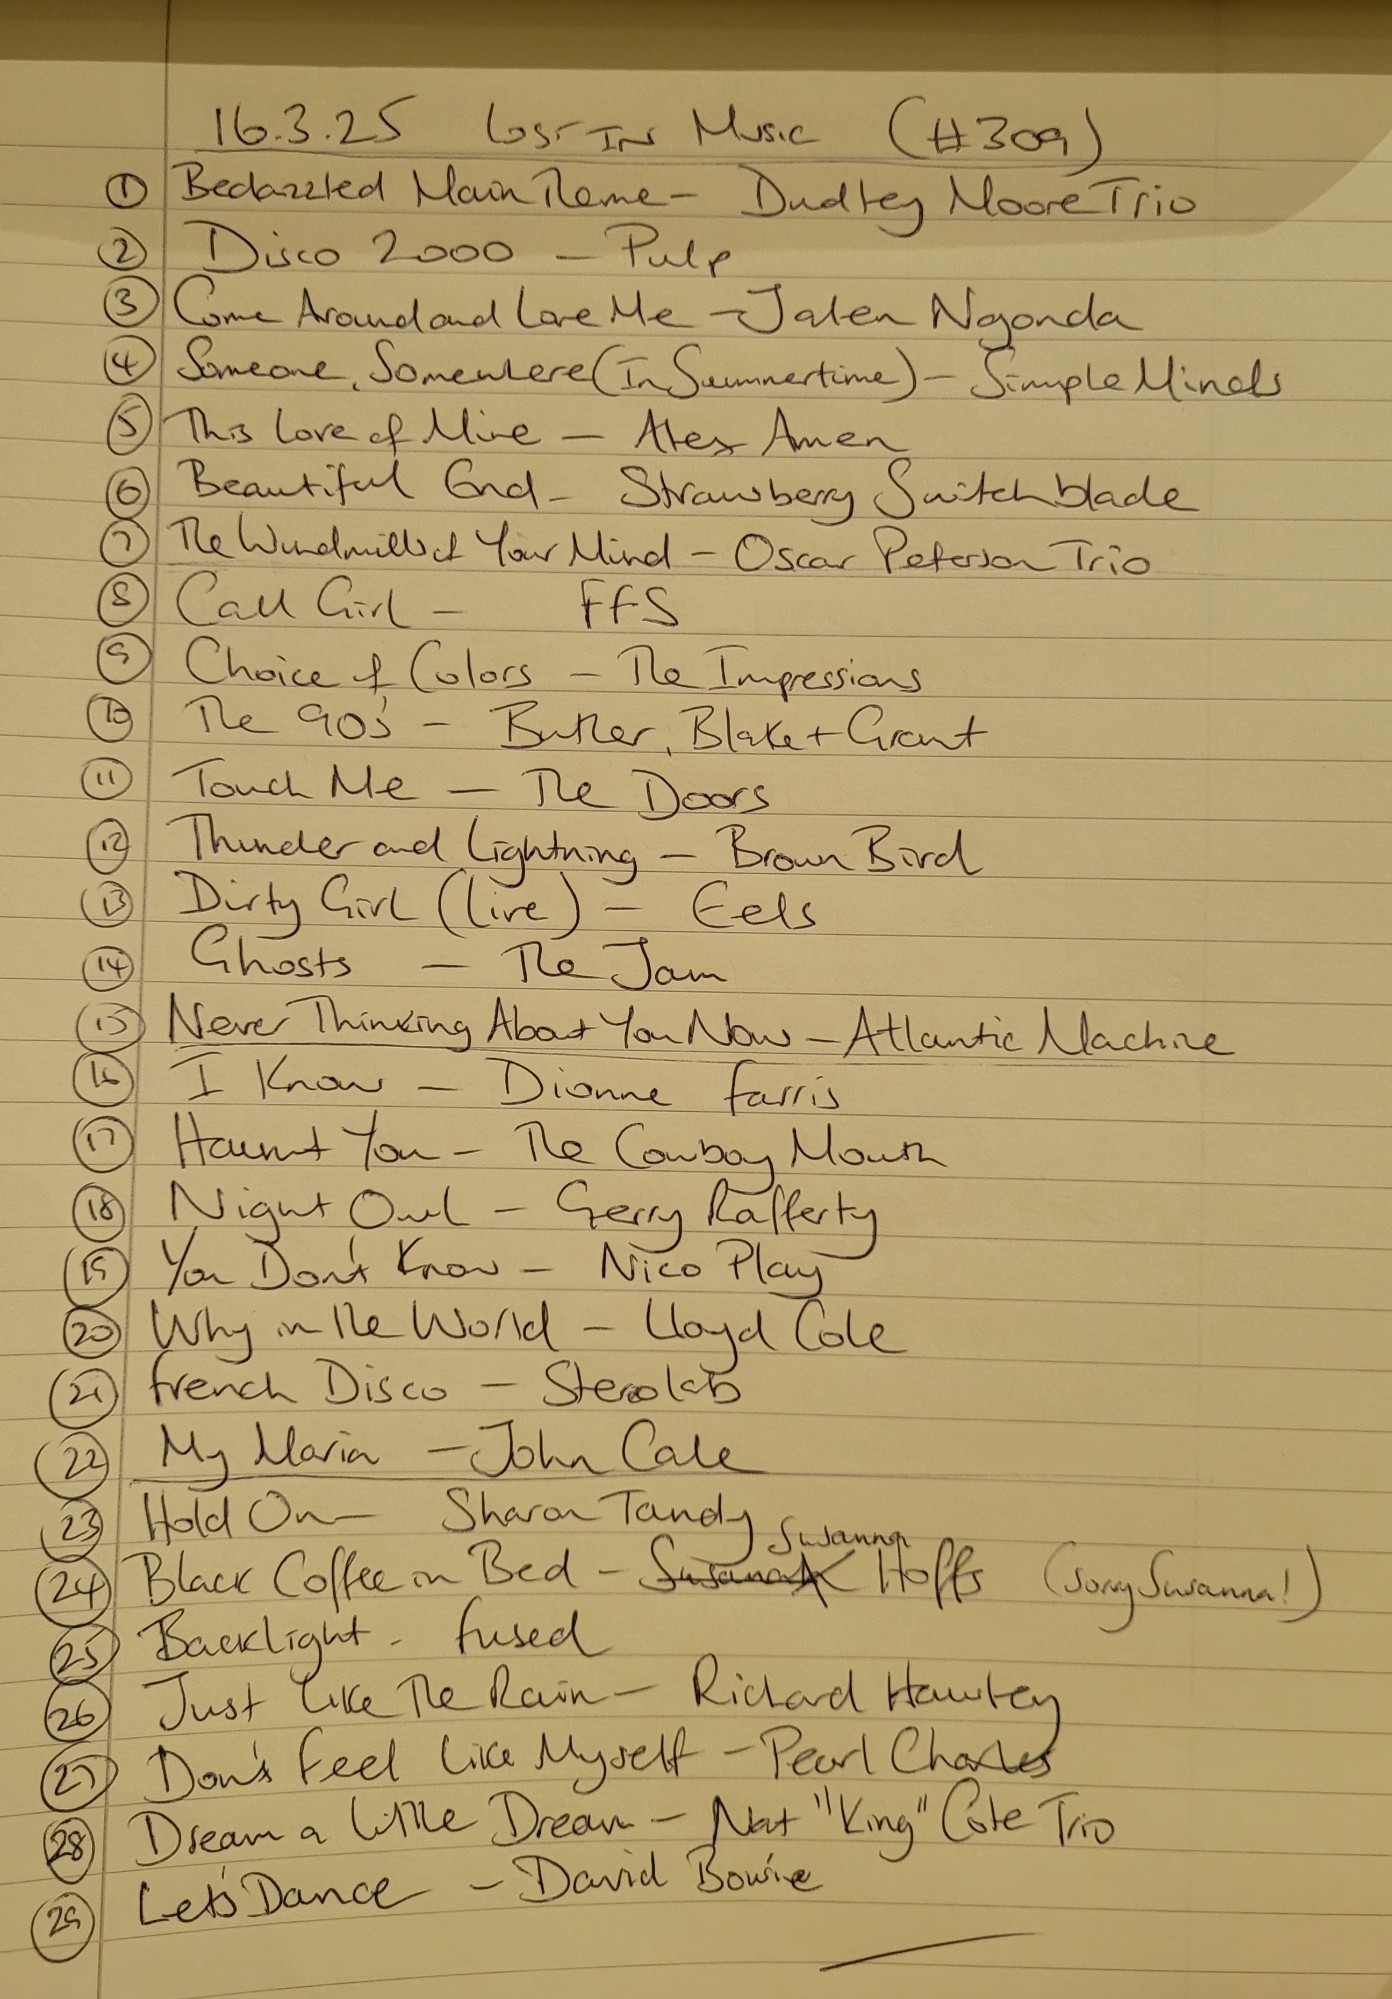 16.3.25 Lost In Music (#309)
① Bedazzled Main Theme - Dudley Moore Trio
② Disco 2000 - Pulp
③ Come Around and Love Me - Jalen Ngonda
④ Someone, Somewhere (In Summertime) - Simple Minds
⑤ This Love of Mine - Alex Amen
⑥ Beautiful End - Strawberry Switchblade
⑦ The Windmills of Your Mind - Oscar Peterson Trio
⑧ Call Girl - FFS
⑨ Choice of Colors - The Impressions
⑩ The 90's - Butler, Blake + Grant
⑪ Touch Me - The Doors
⑫ Thunder and Lightning - Brown Bird
⑬ Dirty Girl (Live) - Eels
⑭ Ghosts - The Jam
⑮ Never Thinking About You Now - Atlantic Machine
⑯ I Know - Dionne Farris
⑰ Haunt You - The Cowboy Mouth
⑱ Night Owl - Gerry Rafferty
⑲ You Don't Know - Nico Play
⑳ Why in the World - Lloyd Cole
㉑ French Disco - Stereolab
㉒ My Maria - John Cale
㉓ Hold On - Sharon Tandy
㉔ Black Coffee in Bed - Susanna Hoffs (sorry Susanna!)
㉕ Backlight - Fused
㉖ Just Like The Rain - Richard Hawley
㉗ Don't Feel Like Myself - Pearl Charles
㉘ Dream a Little Dream - Nat "King" Cole Trio
㉙ Let's Dance - David Bowie